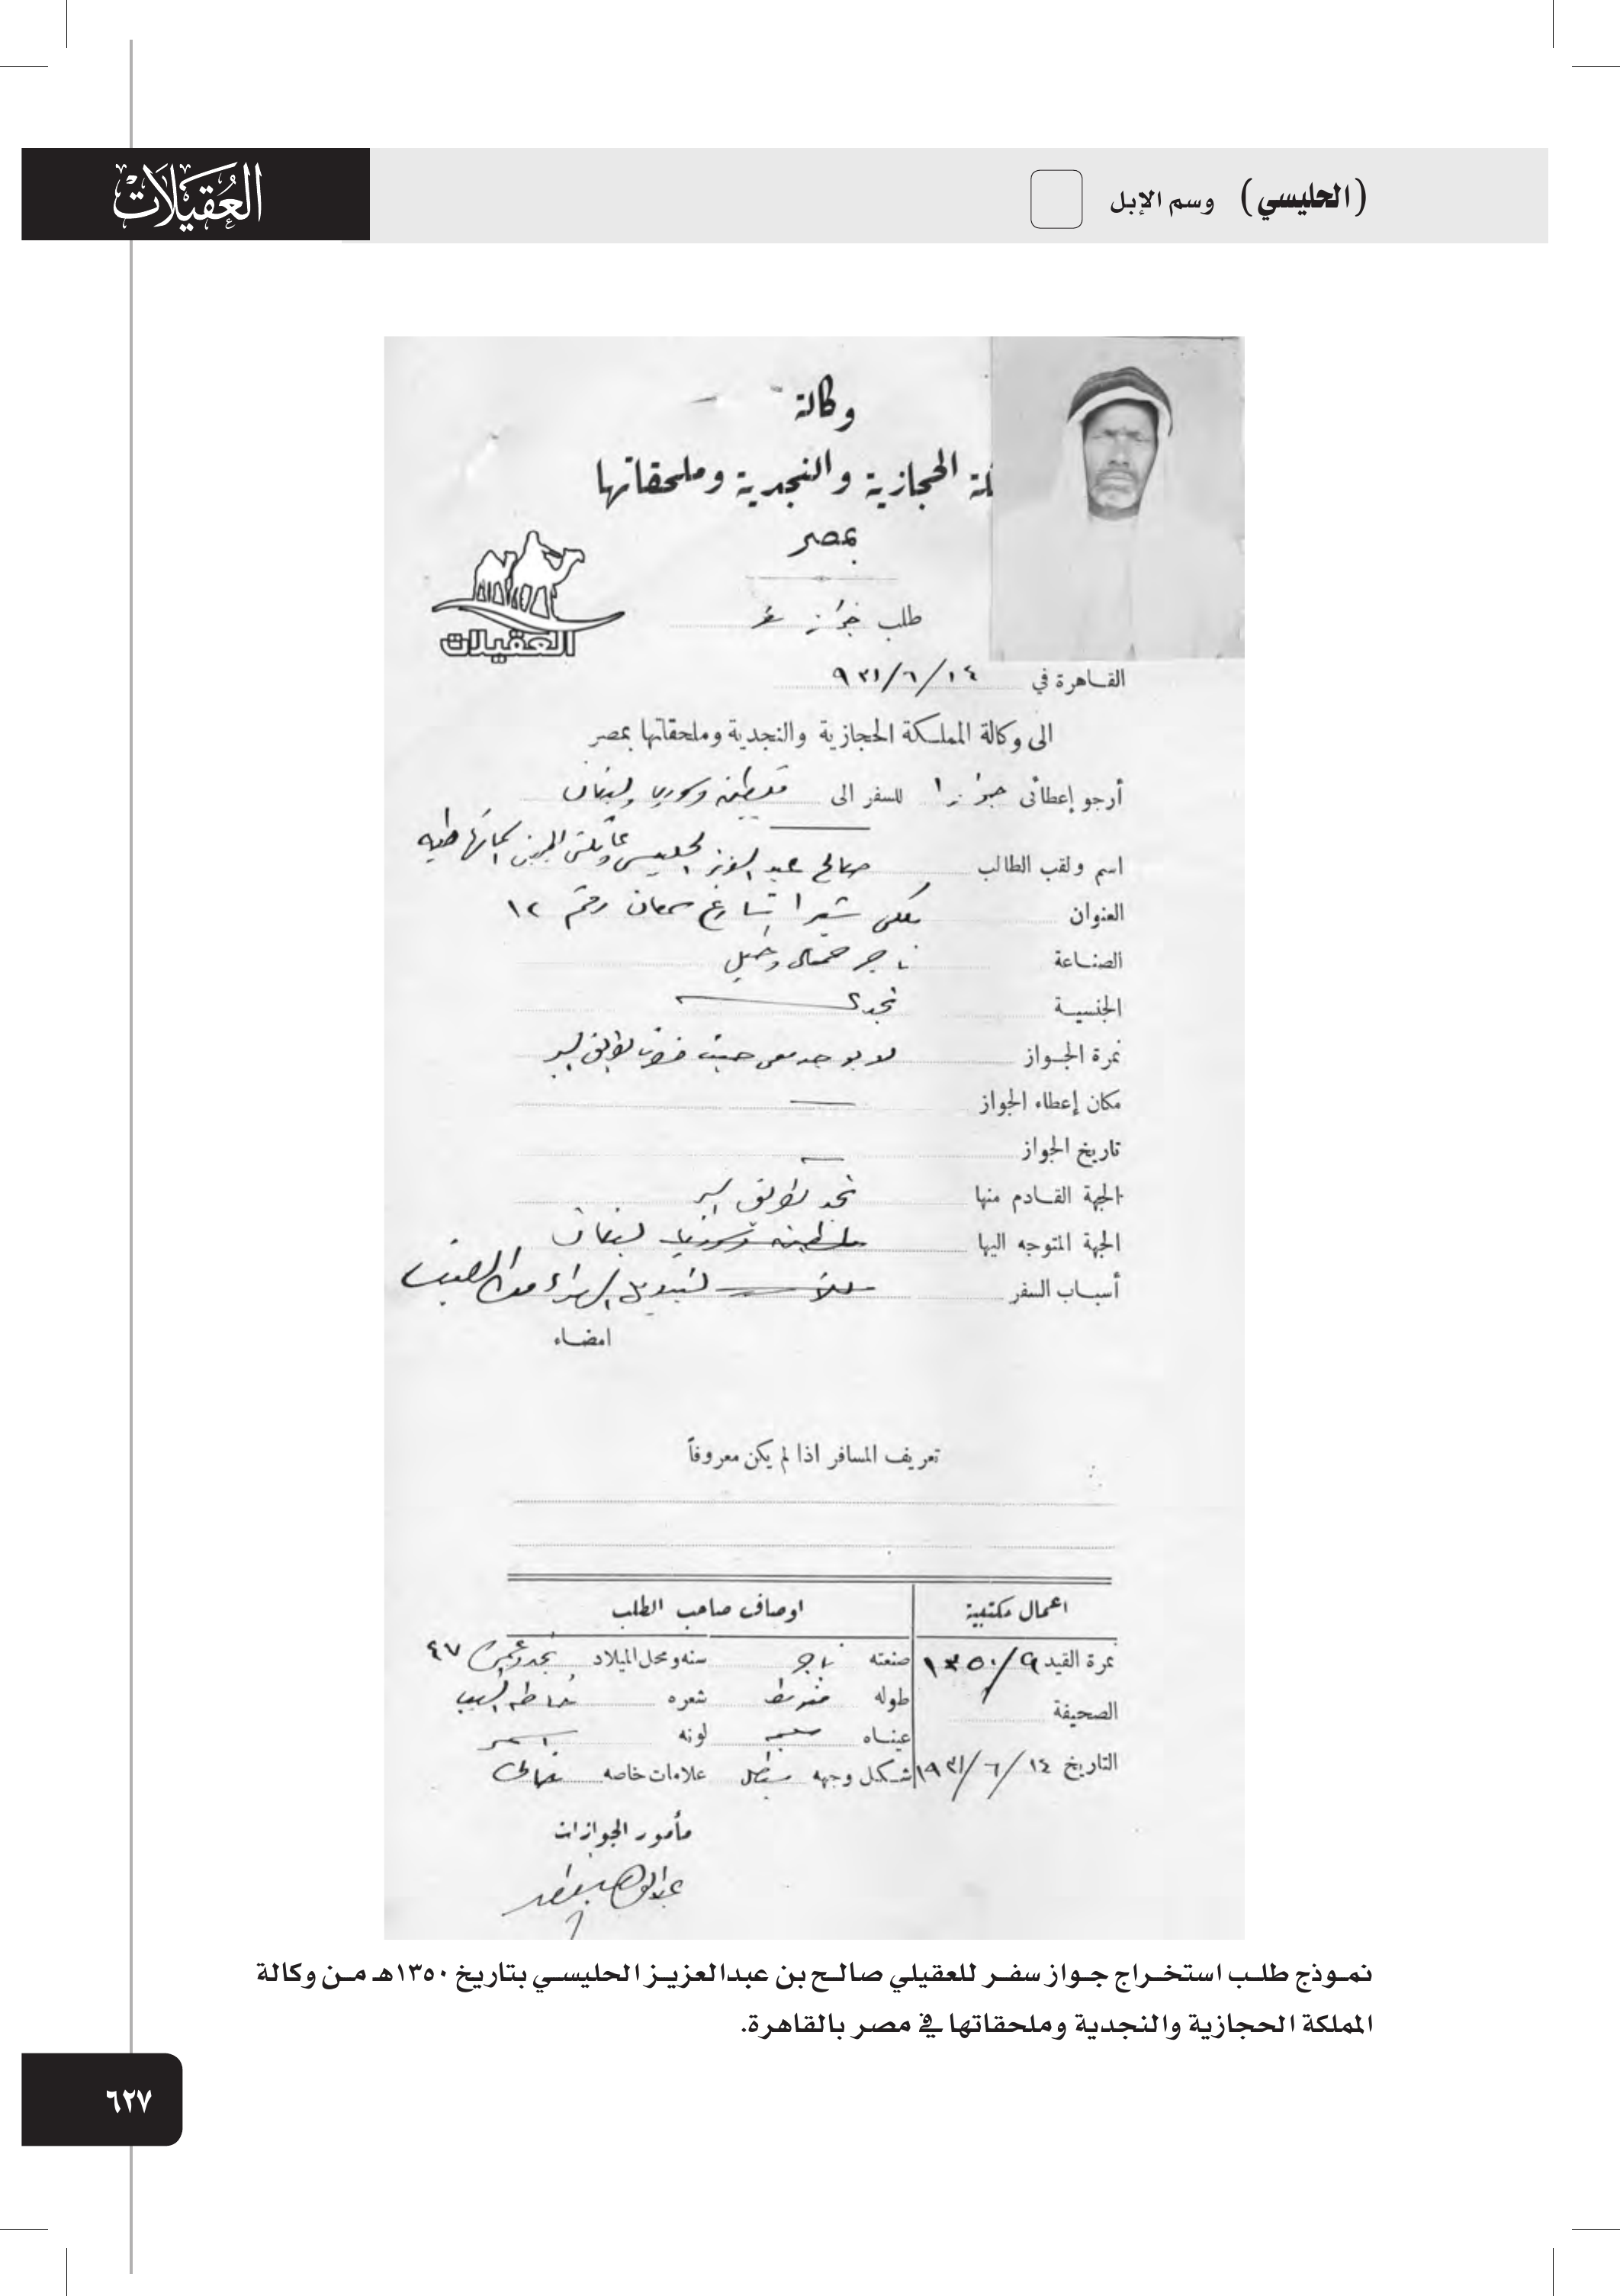 (الحليسي) وسم الإبل
العُقيلات
وكالة
لكة الحجازية والنجدية وملحقاتها
بمصر
العقيلات
طلب جواز سفر
القاهرة في ١٤/٦/٩٣١
الى وكالة المملكة الحجازية والنجدية وملحقاتها بمصر
أرجو إعطائى جوازا للسفر الى فلسطين وسوريا ولبنان
اسم ولقب الطالب صالح عبد العزيز الحليسي
العنوان شبرا شارع سمعان رقم ١٢
الصناعة تاجر جمال وخيل
الجنسية نجدى
نمرة الجواز لا يوجد معى حيث بطريق البر
مكان إعطاء الجواز
تاريخ الجواز
الجهة القادم منها نجد بطريق البر
الجهة المتوجه اليها فلسطين وسوريا لبنان
أسباب السفر لتبديل الهواء
امضاء
تعريف المسافر اذا لم يكن معروفاً
اعمال مكتبية اوصاف صاحب الطلب
نمرة القيد ١٣٥٠/٩ صنعته تاجر سنه ومحل الميلاد نجد ٤٧
الصحيفة طوله شعره
عيناه لونه اسمر
التاريخ ١٤/٦/١٩٣١ شكل وجهه مستطيل علامات خاصه
مأمور الجوازات
نموذج طلب استخراج جواز سفر للعقيلي صالح بن عبدالعزيز الحليسي بتاريخ ١٣٥٠هـ من وكالة
المملكة الحجازية والنجدية وملحقاتها في مصر بالقاهرة.
٦٢٧